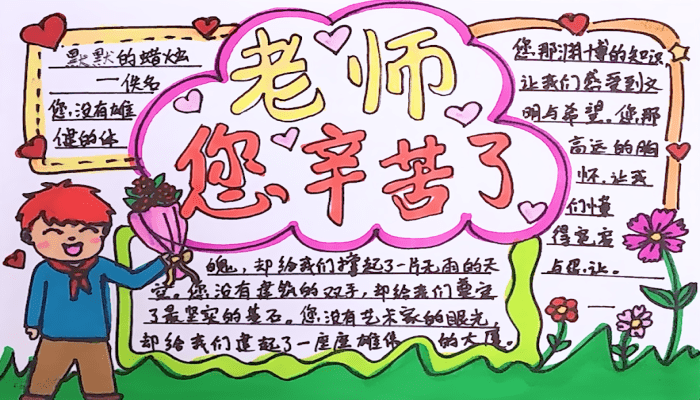 老师
您辛苦了
默默的蜡烛
——佚名
您没有雄
健的体
魄，却给我们撑起了一片无雨的天
空。您没有建筑的双手，却给我们奠定
了最坚实的基石。您没有艺术家的眼光
却给我们建起了一座座雄伟 的大厦。
您那渊博的知识
让我们感受到文
明与希望。您那
高远的胸
怀，让我
们懂
得宽容
与忍让。